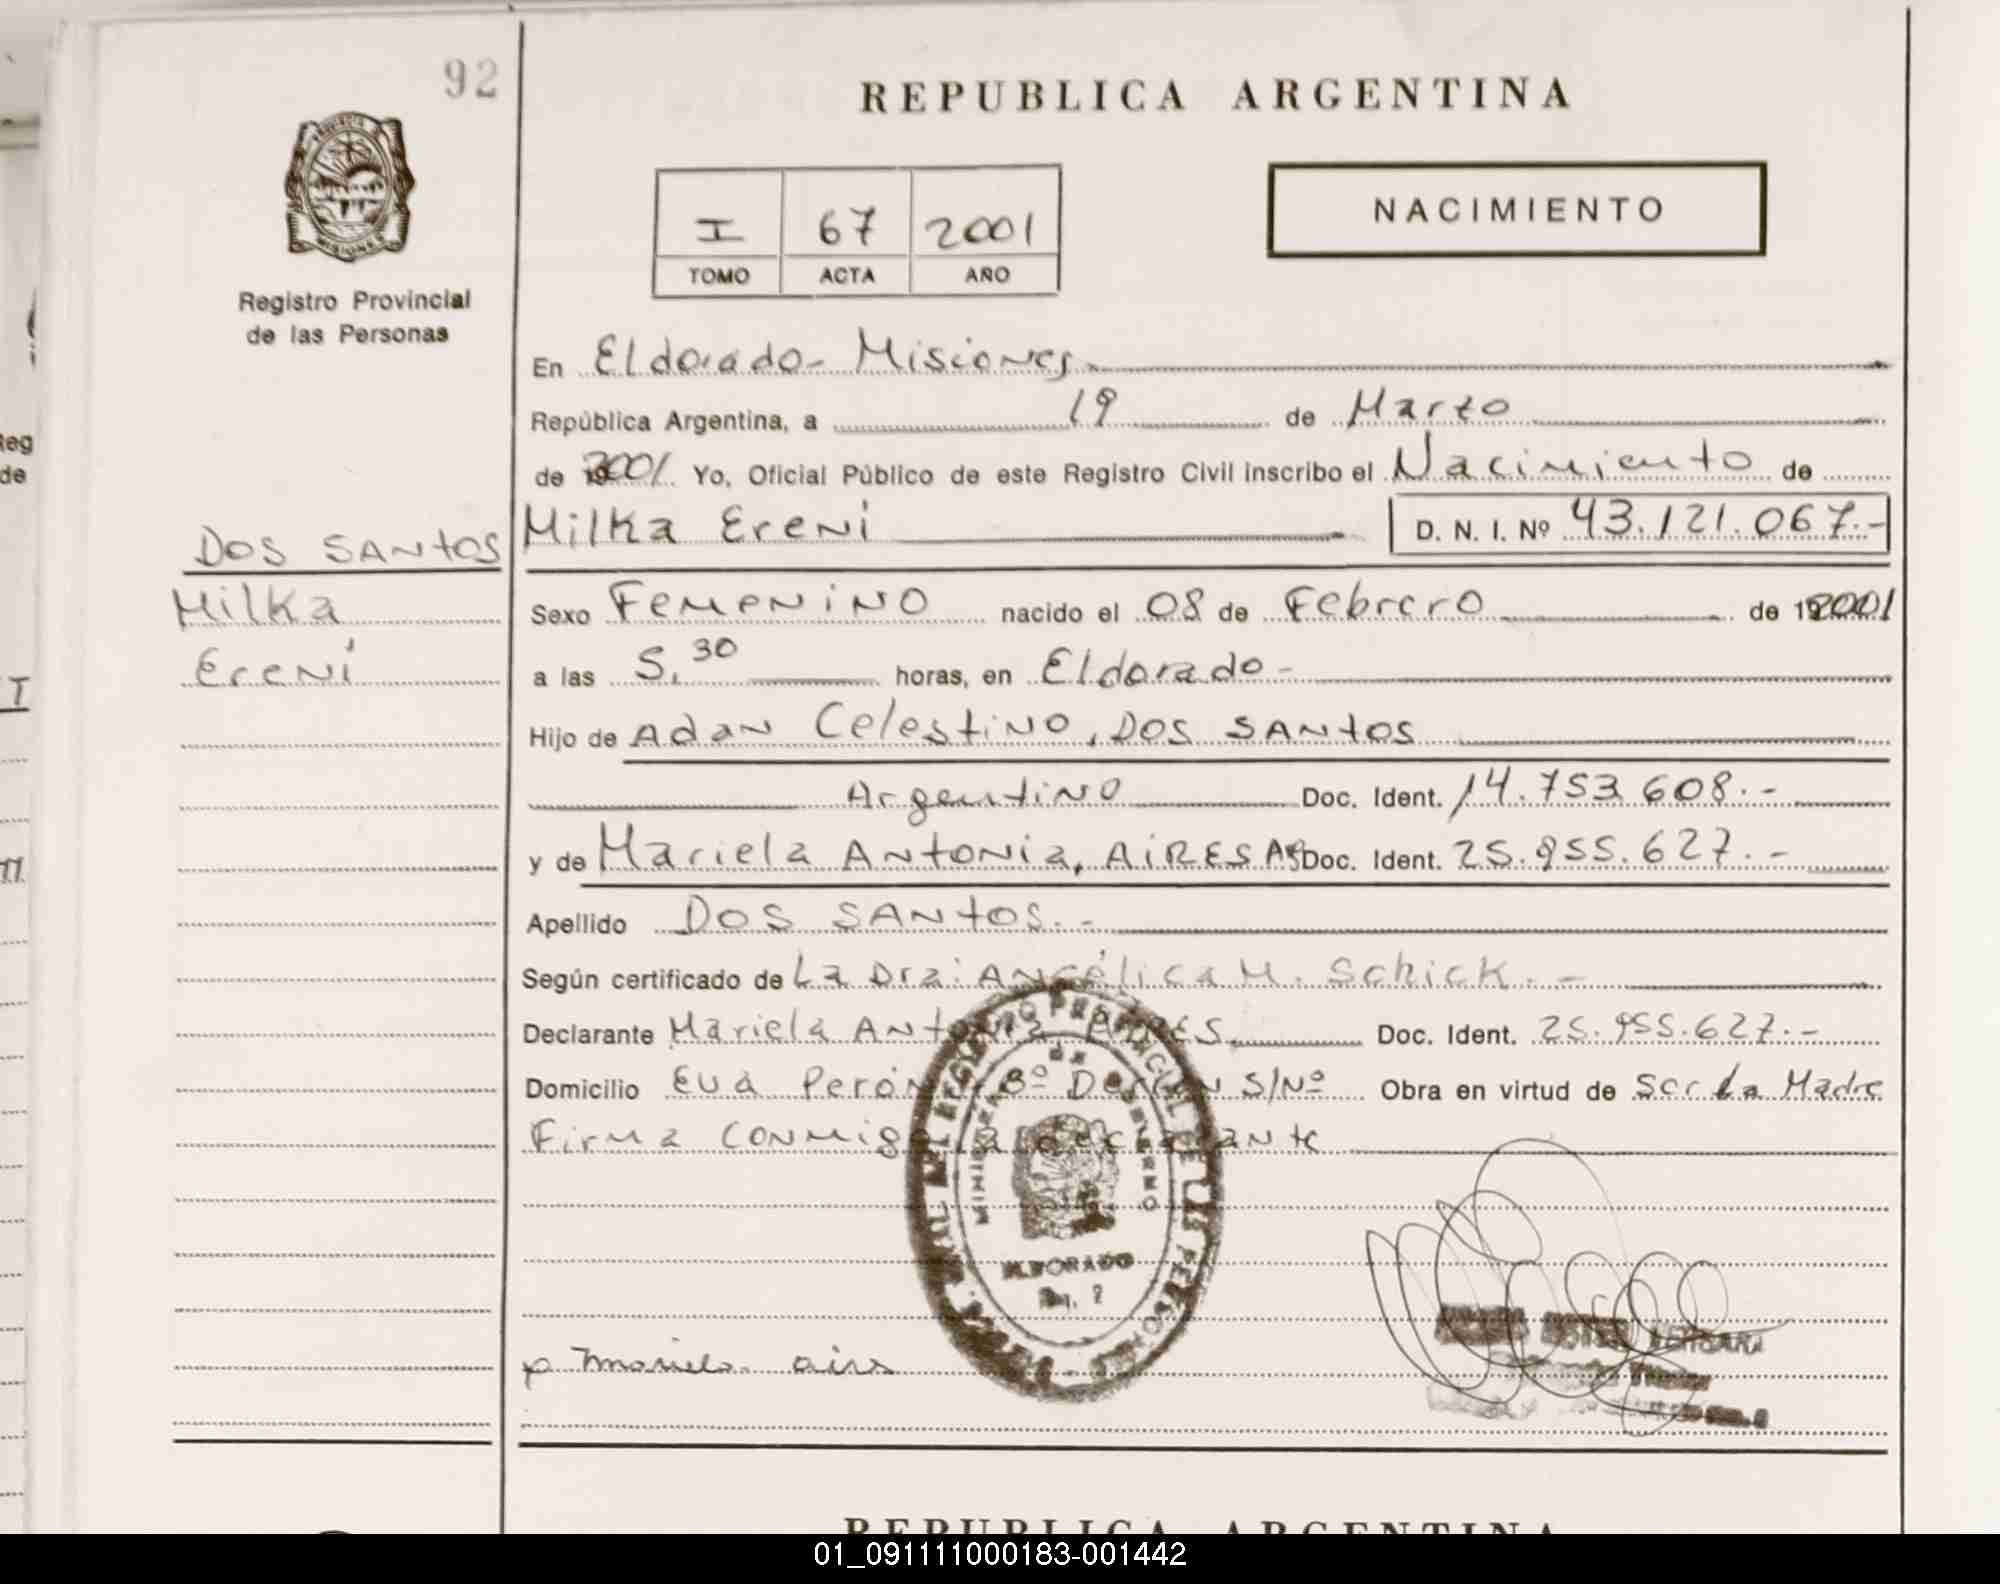 92
REPUBLICA ARGENTINA
PROVINCIA
MISIONES
Registro Provincial
de las Personas
I 67 2001
TOMO ACTA AÑO
NACIMIENTO
En Eldorado - Misiones
República Argentina, a 19 de Marzo
de 2001. Yo, Oficial Público de este Registro Civil inscribo el Nacimiento de
DOS SANTOS
Milka
Erení
Milka Erení D. N. I. Nº 43.121.067.-
Sexo Femenino nacido el 08 de Febrero de 2001
a las 5,30 horas, en Eldorado -
Hijo de Adan Celestino, DOS SANTOS
Argentino Doc. Ident. 14.753.608.-
y de Mariela Antonia, AIRES Doc. Ident. 25.955.627.-
Apellido DOS SANTOS.-
Según certificado de La Dra: Angélica M. Schick.-
Declarante Mariela Antonia AIRES Doc. Ident. 25.955.627.-
Domicilio Eva Perón Bº S/Nº Obra en virtud de Ser La Madre
Firma conmigo la declarante
MINISTERIO DE GOBIERNO
ELDORADO
REPUBLICA ARGENTINA
01_091111000183-001442